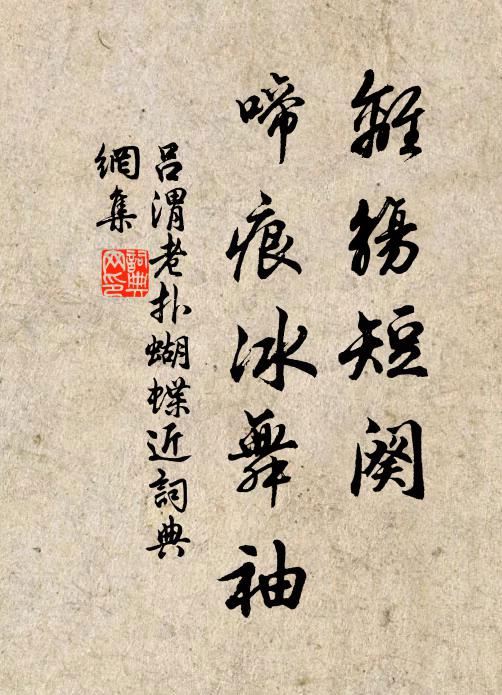 離觴短闋
啼痕冰舞袖
呂渭老扑蝴蝶近詞典
網集
詞典
网印